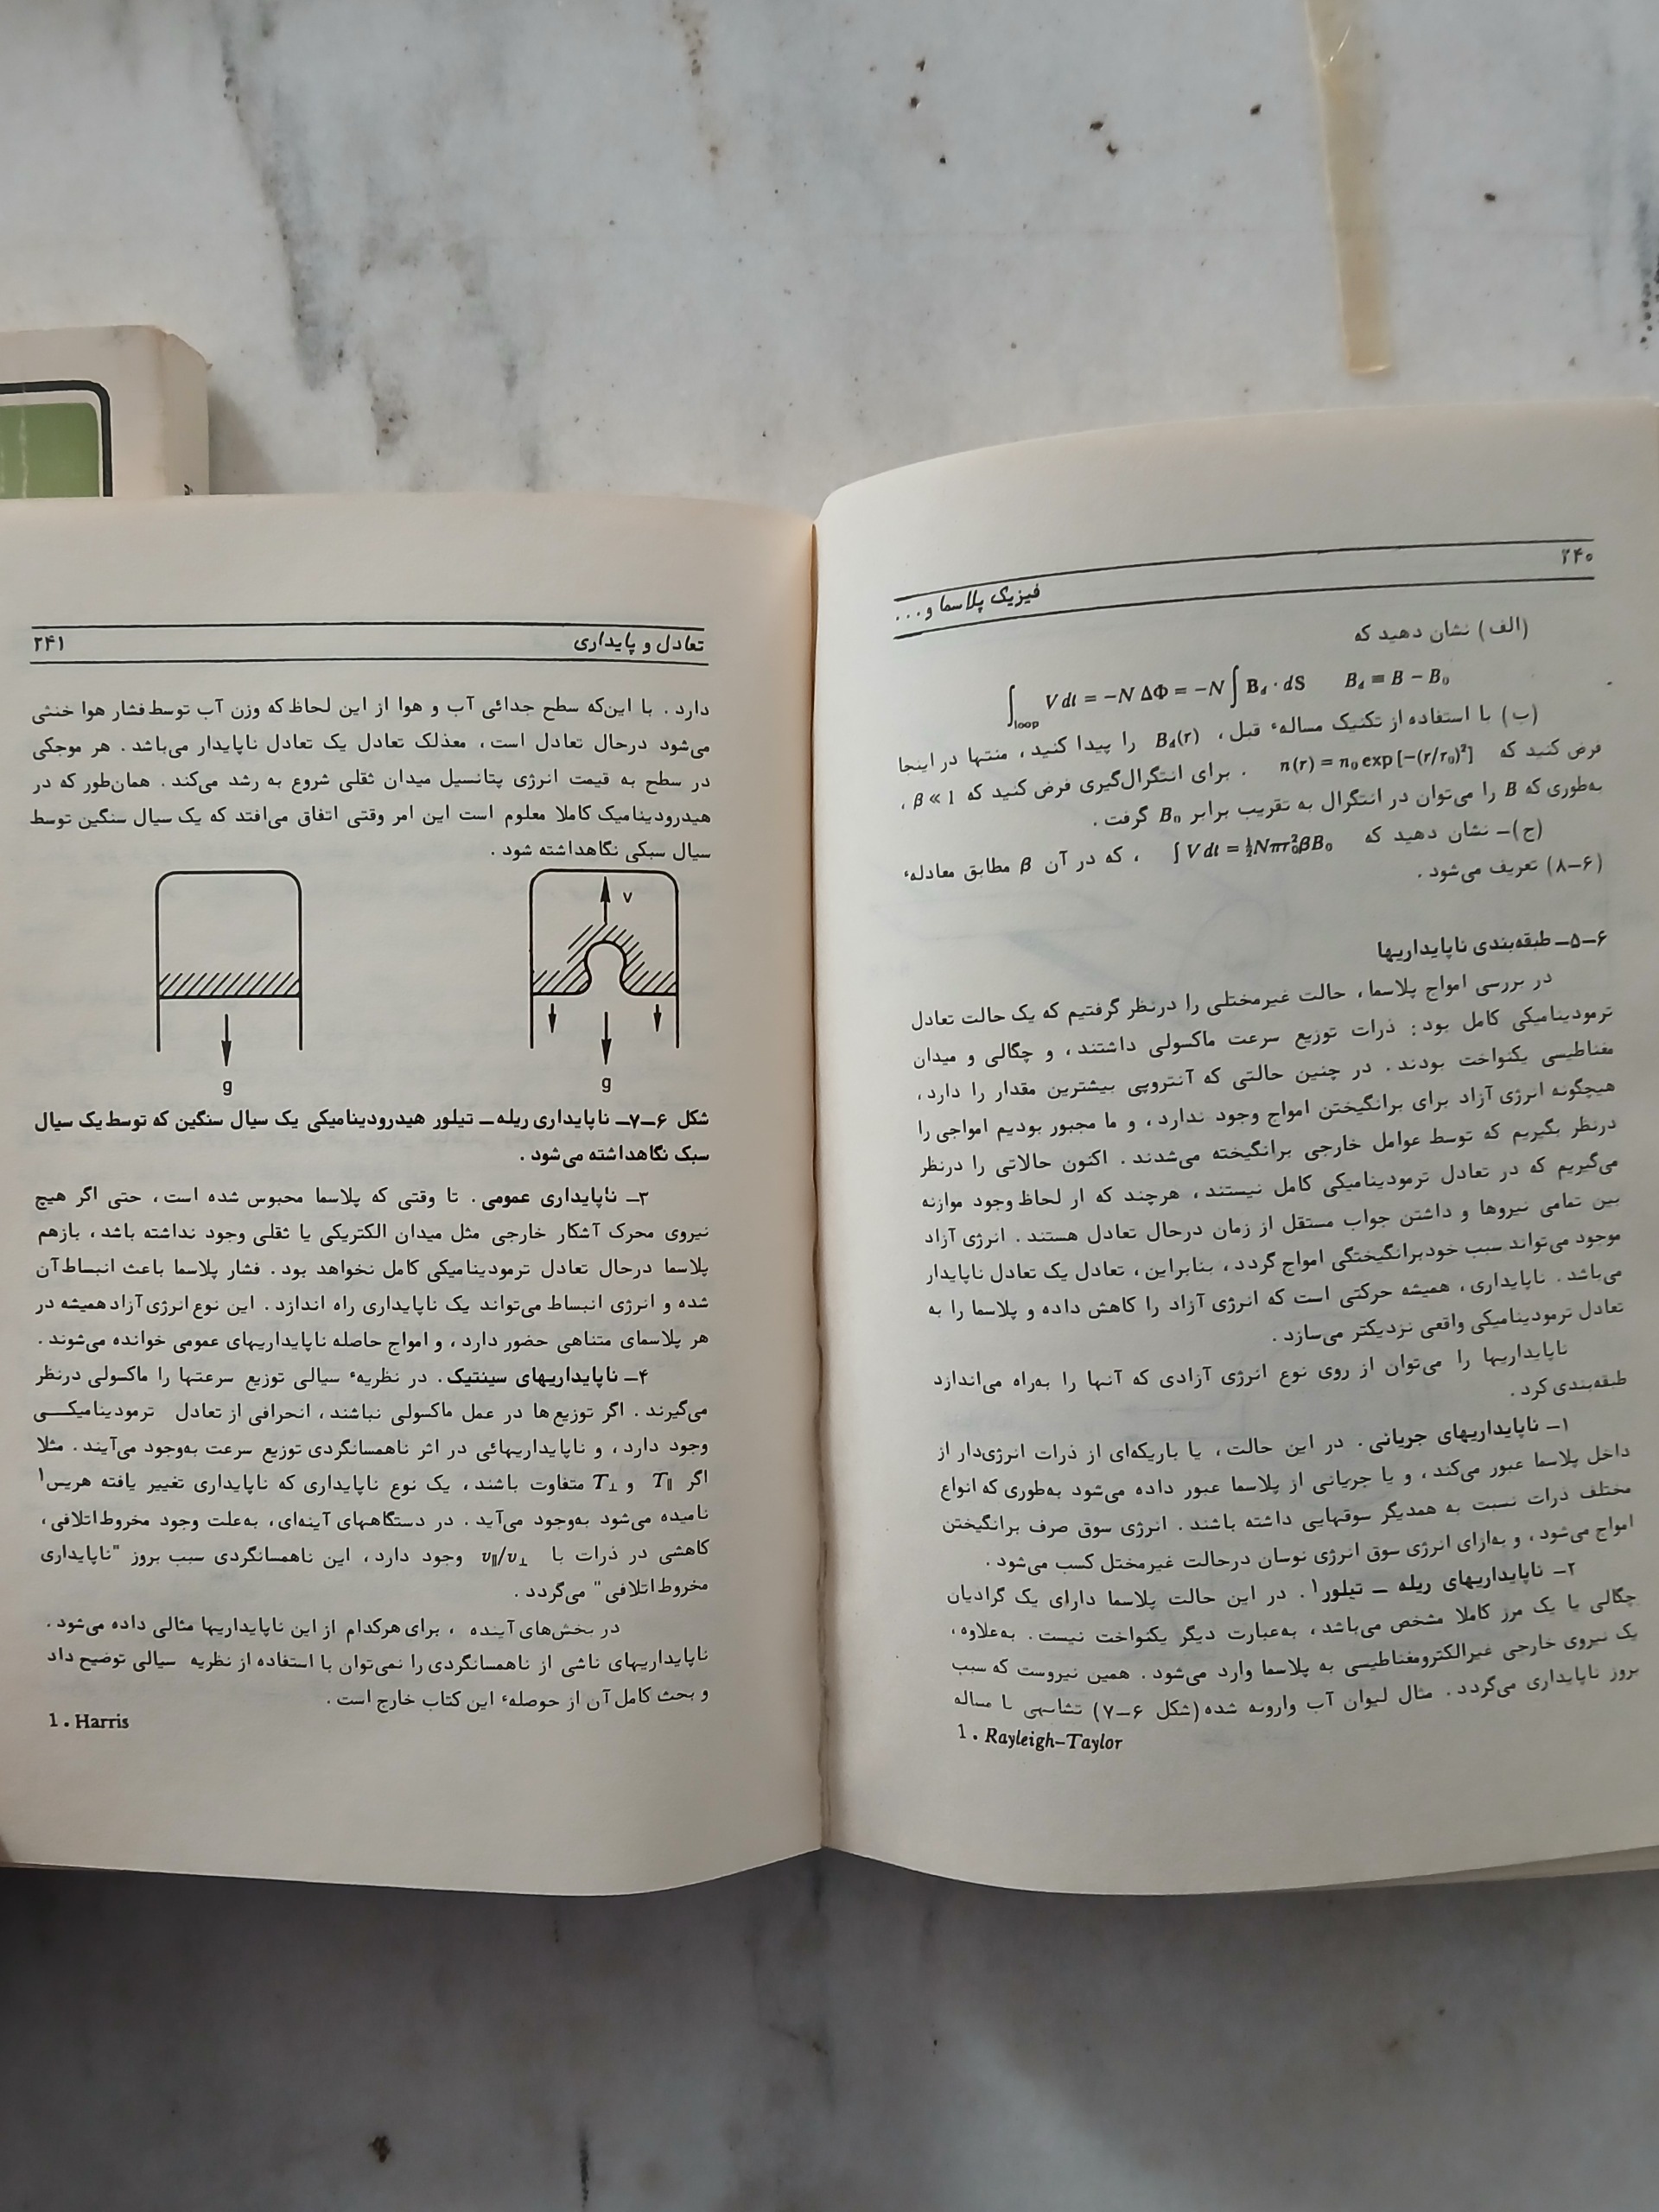 ۲۴۰
فیزیک پلاسما و...
(الف) نشان دهید که
∫loop V dt = −N ΔΦ = −N ∫ Bd · dS    Bd ≡ B − B0
(ب) با استفاده از تکنیک مساله‌ء قبل، Bd(r) را پیدا کنید، منتها در اینجا
فرض کنید که n(r) = n0 exp [−(r/r0)²] . برای انتگرال‌گیری فرض کنید که β ≪ 1 ،
به‌طوری که B را می‌توان در انتگرال به تقریب برابر B0 گرفت .
(ج)– نشان دهید که ∫ V dt = ½Nπr0²βB0 ، که در آن β مطابق معادله‌ء
(۶–۸) تعریف می‌شود .
۶–۵– طبقه‌بندی ناپایداریها
در بررسی امواج پلاسما، حالت غیرمختلی را درنظر گرفتیم که یک حالت تعادل
ترمودینامیکی کامل بود: ذرات توزیع سرعت ماکسولی داشتند، و چگالی و میدان
مغناطیسی یکنواخت بودند. در چنین حالتی که آنتروپی بیشترین مقدار را دارد،
هیچگونه انرژی آزاد برای برانگیختن امواج وجود ندارد، و ما مجبور بودیم امواجی را
درنظر بگیریم که توسط عوامل خارجی برانگیخته می‌شدند. اکنون حالاتی را درنظر
می‌گیریم که در تعادل ترمودینامیکی کامل نیستند، هرچند که ار لحاظ وجود موازنه
بین تمامی نیروها و داشتن جواب مستقل از زمان درحال تعادل هستند. انرژی آزاد
موجود می‌تواند سبب خودبرانگیختگی امواج گردد، بنابراین، تعادل یک تعادل ناپایدار
می‌باشد. ناپایداری، همیشه حرکتی است که انرژی آزاد را کاهش داده و پلاسما را به
تعادل ترمودینامیکی واقعی نزدیکتر می‌سازد.
ناپایداریها را می‌توان از روی نوع انرژی آزادی که آنها را به‌راه می‌اندازد
طبقه‌بندی کرد.
۱– ناپایداریهای جریانی. در این حالت، یا باریکه‌ای از ذرات انرژی‌دار از
داخل پلاسما عبور می‌کند، و یا جریانی از پلاسما عبور داده می‌شود به‌طوری که انواع
مختلف ذرات نسبت به همدیگر سوقهایی داشته باشند. انرژی سوق صرف برانگیختن
امواج می‌شود، و به‌ازای انرژی سوق انرژی نوسان درحالت غیرمختل کسب می‌شود.
۲– ناپایداریهای ریله – تیلور۱. در این حالت پلاسما دارای یک گرادیان
چگالی یا یک مرز کاملا مشخص می‌باشد، به‌عبارت دیگر یکنواخت نیست. به‌علاوه،
یک نیروی خارجی غیرالکترومغناطیسی به پلاسما وارد می‌شود. همین نیروست که سبب
بروز ناپایداری می‌گردد. مثال لیوان آب وارونه شده (شکل ۶–۷) تشابهی با مساله
1. Rayleigh–Taylor
تعادل و پایداری
۲۴۱
دارد. با این‌که سطح جدائی آب و هوا از این لحاظ که وزن آب توسط فشار هوا خنثی
می‌شود درحال تعادل است، معذلک تعادل یک تعادل ناپایدار می‌باشد. هر موجکی
در سطح به قیمت انرژی پتانسیل میدان ثقلی شروع به رشد می‌کند. همان‌طور که در
هیدرودینامیک کاملا معلوم است این امر وقتی اتفاق می‌افتد که یک سیال سنگین توسط
سیال سبکی نگاهداشته شود.
v
g
g
شکل ۶–۷– ناپایداری ریله– تیلور هیدرودینامیکی یک سیال سنگین که توسط یک سیال
سبک نگاهداشته می‌شود.
۳– ناپایداری عمومی. تا وقتی که پلاسما محبوس شده است، حتی اگر هیچ
نیروی محرک آشکار خارجی مثل میدان الکتریکی یا ثقلی وجود نداشته باشد، بازهم
پلاسما درحال تعادل ترمودینامیکی کامل نخواهد بود. فشار پلاسما باعث انبساط آن
شده و انرژی انبساط می‌تواند یک ناپایداری راه اندازد. این نوع انرژی آزاد همیشه در
هر پلاسمای متناهی حضور دارد، و امواج حاصله ناپایداریهای عمومی خوانده می‌شوند.
۴– ناپایداریهای سینتیک. در نظریه‌ء سیالی توزیع سرعتها را ماکسولی درنظر
می‌گیرند. اگر توزیع‌ها در عمل ماکسولی نباشند، انحرافی از تعادل ترمودینامیکی
وجود دارد، و ناپایداریهائی در اثر ناهمسانگردی توزیع سرعت به‌وجود می‌آیند. مثلا
اگر T∥ و T⊥ متفاوت باشند، یک نوع ناپایداری که ناپایداری تغییر یافته هریس۱
نامیده می‌شود به‌وجود می‌آید. در دستگاههای آینه‌ای، به‌علت وجود مخروط اتلافی،
کاهشی در ذرات با v∥/v⊥ وجود دارد، این ناهمسانگردی سبب بروز "ناپایداری
مخروط اتلافی" می‌گردد.
در بخش‌های آینده ، برای هرکدام از این ناپایداریها مثالی داده می‌شود.
ناپایداریهای ناشی از ناهمسانگردی را نمی‌توان با استفاده از نظریه سیالی توضیح داد
و بحث کامل آن از حوصله‌ء این کتاب خارج است.
1. Harris